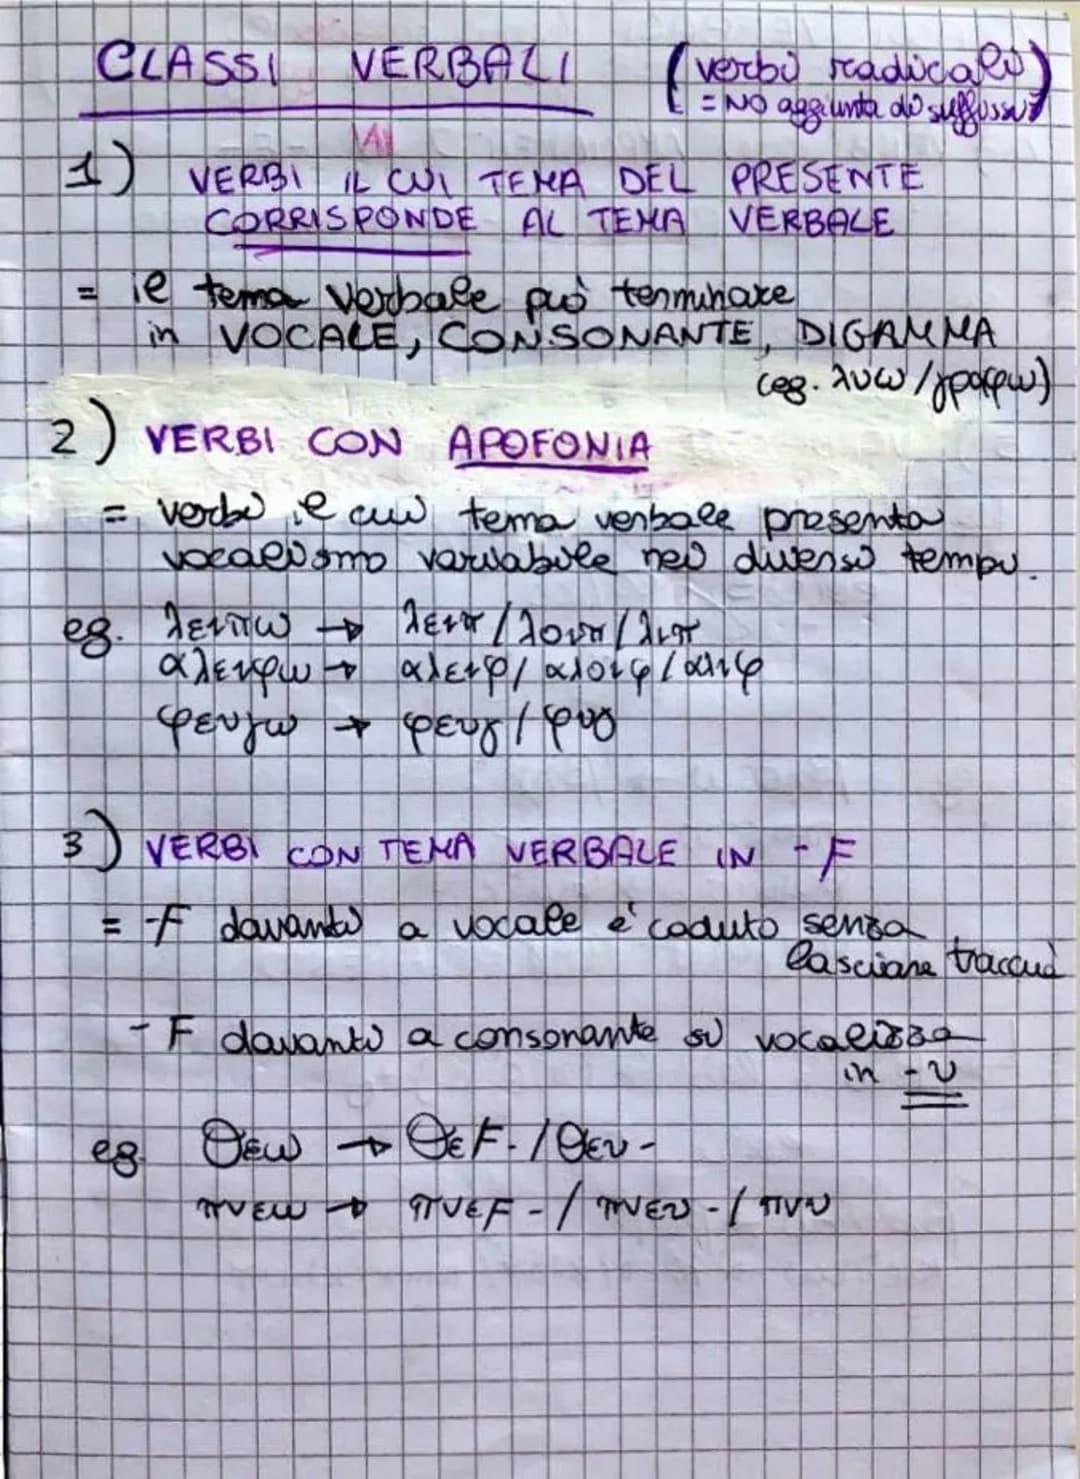 CLASSI VERBALI (verbi radicali)
= NO aggiunta di suffissi
1) VERBI IL CUI TEMA DEL PRESENTE
CORRISPONDE AL TEMA VERBALE
= il tema verbale può terminare
in VOCALE, CONSONANTE, DIGAMMA
(eg. λυω / γραφω)
2) VERBI CON APOFONIA
= verbi il cui tema verbale presenta
vocalismo variabile nei diversi tempi.
eg. λειπω → λειπ / λοιπ / λιπ
αλειφω → αλειφ / αλοιφ / αλιφ
φευγω → φευγ / φυγ
3) VERBI CON TEMA VERBALE IN -F
= -F davanti a vocale è caduto senza
lasciare traccia
- F davanti a consonante si vocalizza
in -υ
eg. θεω → θεF- / θευ-
πνεω → πνεF- / πνευ- / πνυ